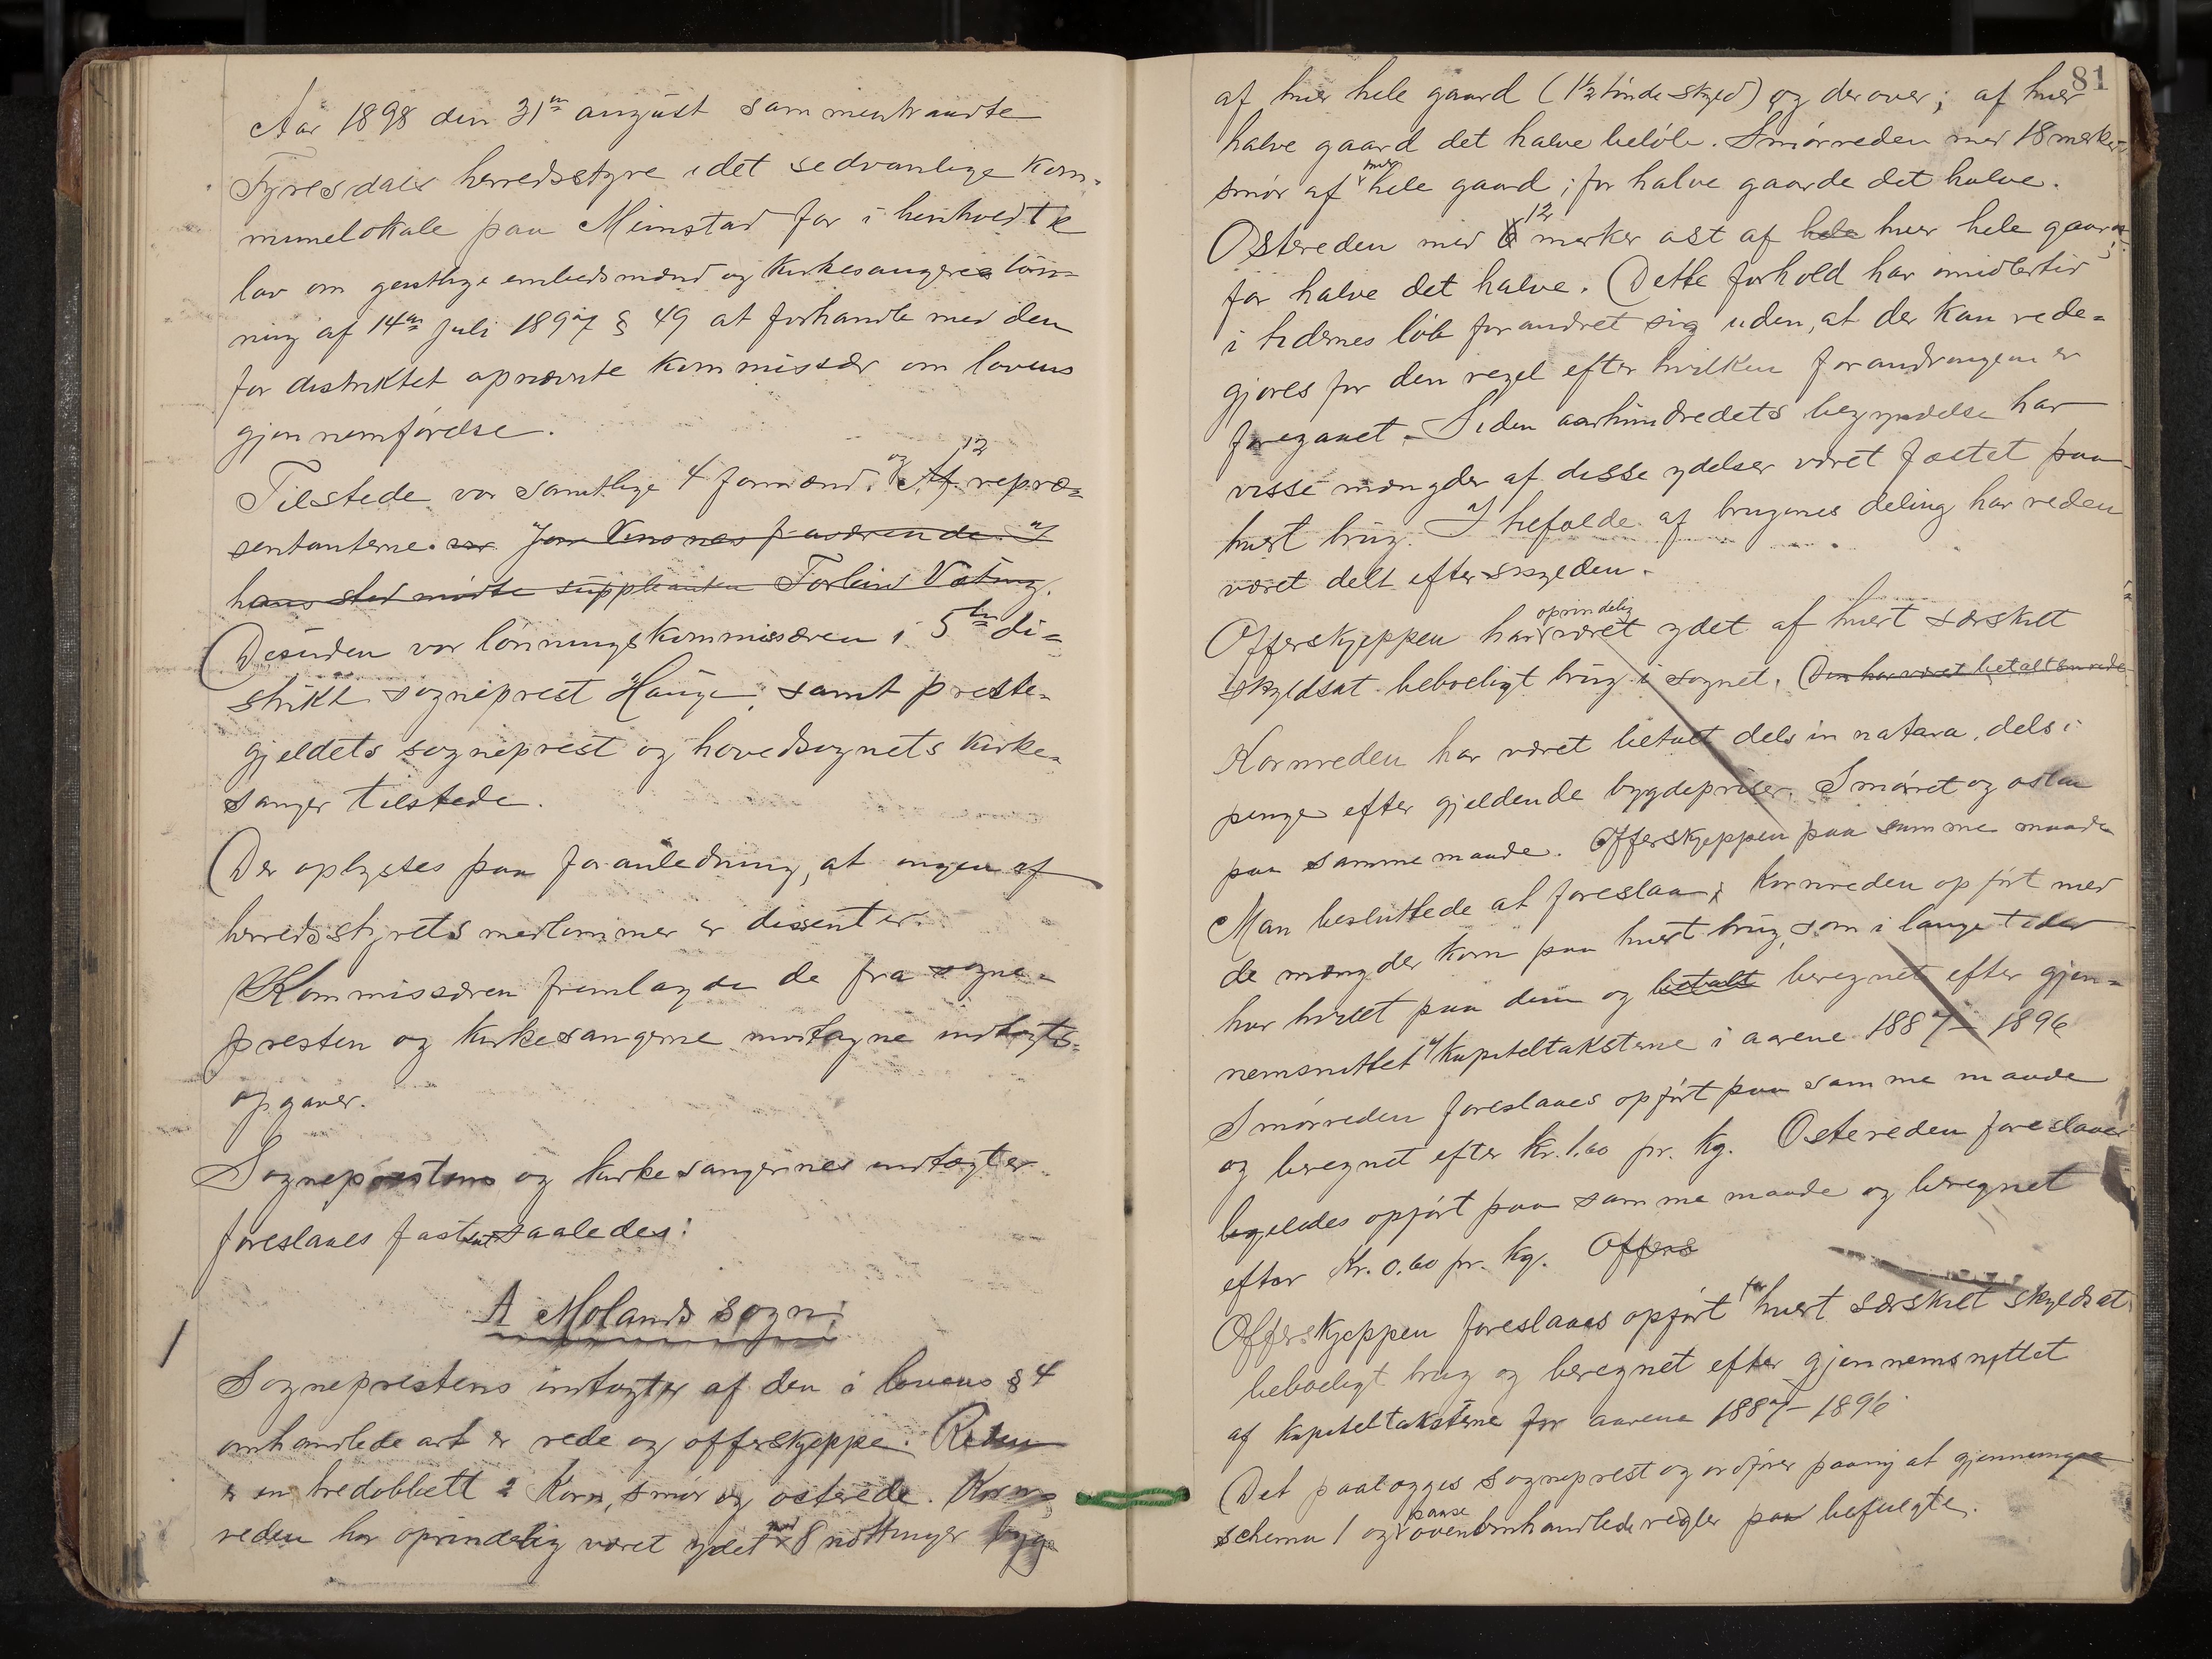 Aar 1898 den 31te august sammentraadte
Tyresdals herredsstyre i det sedvanlige kom-
munelokale paa Meimstad for i henhold til
lov om geistlige embedsmænd og kirkesangeres løn-
ning af 14de juli 1897 § 49 at forhandle med den
for distriktet opnævnte kommissær om lovens
gjennemførelse.
Tilstede var samtlige 4 formænd. og 12 Af repræ-
sentanterne. var Jon fraværende. I
hans sted mødte suppleanten Torleiv
Desuden var lønningskommissæren i 5te di-
strikt sogneprest Hauge, samt preste-
gjeldets sogneprest og hovedsognets kirke-
sanger tilstede.
Der oplystes paa foranledning, at ingen af
herredsstyrets medlemmer er dissenter.
Kommissæren fremlagde de fra sogne-
presten og kirkesangerne modtagne indtægts-
opgaver.
Sogneprestens og kirkesangernes indtægter
foreslaaes fastsat saaledes:
A Molands sogn:
Sogneprestens indtægter af den i lovens § 4
omhandlede art er rede og offerskjeppe. Reden
er en tredobbelt: Korn, smør og osterede. Korn-
reden har oprindelig været ydet med 8 nøttinger byg
81
af hver hele gaard (1 1/2 tønde skyld) og derover; af hver
halve gaard det halve beløb. Smørreden med 18 merker
smør af hver hele gaard; for halve gaarde det halve.
Ostereden med 12 merker ost af hele hver hele gaard;
for halve det halve. Dette forhold har imidlertid
i tidernes løb forandret sig uden, at der kan rede-
gjøres for den regel efter hvilken forandringen er
foregaaet. Siden aarhundredets begyndelse har
visse mængder af disse ydelser været fæstet paa
hvert brug. I tilfælde af brugenes deling har reden
været delt efter skylden.
Offerskjeppen har oprindelig været ydet af hvert særskilt
skyldsat beboeligt brug i sognet. Den har været betalt som rede
Kornreden har været betalt dels in natura, dels i
penge efter gjeldende bygdepriser. Smørret og osten
paa samme maade. Offerskjeppen paa samme maade
Man besluttede at foreslaa: Kornreden opført med
de mængder korn paa hvert brug, som i lange tider
har hvilet paa dem og betalt beregnet efter gjen-
nemsnittet af kapiteltaksterne i aarene 1887 – 1896
Smørreden foreslaaes opført paa samme maade
og beregnet efter Kr. 1.60 pr. kg. Ostereden foreslaaes
ligeledes opført paa samme maade og beregnet
efter Kr. 0.60 pr. kg. Offers
Offerskjeppen foreslaaes opført for hvert særskilt skyldsat
beboeligt brug og beregnet efter gjennemsnittet
af kapiteltaksterne for aarene 1887 – 1896
Det paalægges sogneprest og ordfører paany at gjennemgaa
schema 1 og paase ovenomhandlede regler paa befulgte.